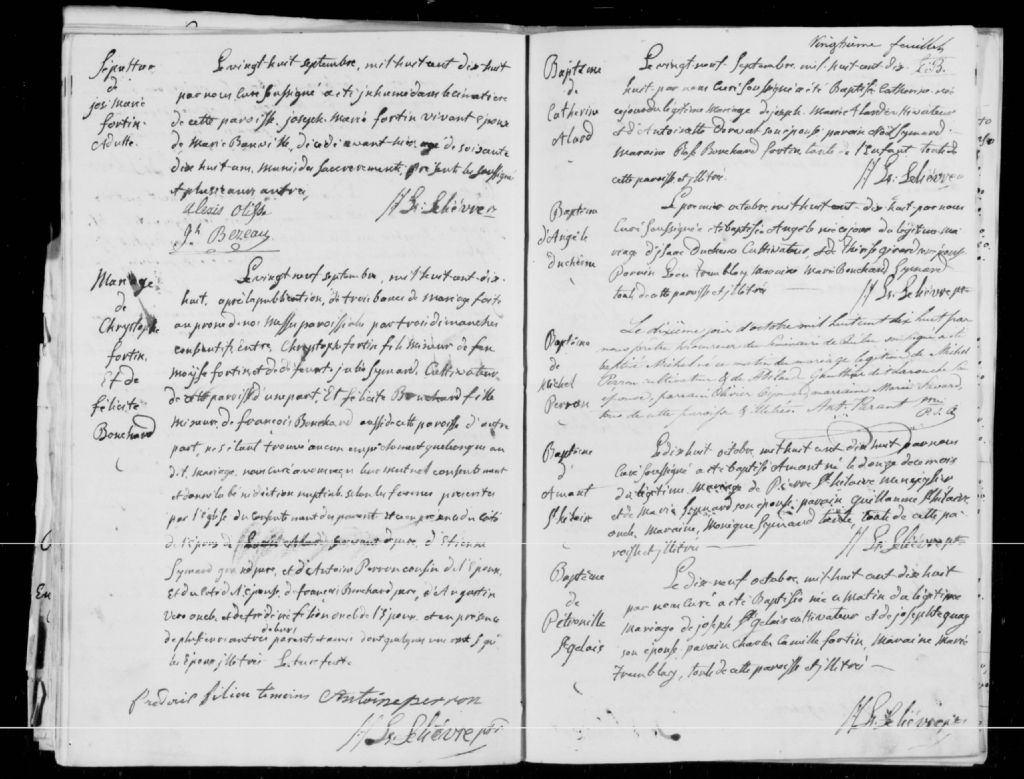 Sépulture
de
Jos: Marie
fortin
Adulte
Le vingt huit septembre, mil huit cent dix huit
par nous curé soussigné a été inhumé dans le cimetière
de cette paroisse, joseph Marie fortin vivant époux
de Marie Banville, décédé avant hier age de soixante
dix huit ans, muni du Sacrement, Présents les soussignés
et plusieurs autres
alexis
Jh Bezeau
H Ls: Lelièvre
Mariage
de
Chrystophe
fortin,
Et de
félicité
Bouchard
Le vingt neuf septembre, mil huit cent dix
huit, après la publication, de trois bancs de mariage faits
au prone de nos Messes paroissiales par trois dimanches
consécutifs Entre, Chrystophe fortin fils mineur de feu
Moÿse fortin et de défeunte julie Symard, Cultivateur
de cette paroisse d'une part, Et félicité Bouchard fille
mineur, de françois Bouchard aussi de cette paroisse d'autre
part, ne s'étant trouvé aucun empêchement quelconque au
d.t. mariage, nous curé avons reçu leur mutuel consentement
et donné la bénédiction nuptiale selon les formes prescrites
par l'église du consentement des parents et en présence du côté
de l'époux de d'Etienne
Symard grand père, et d'Antoine Perron cousin de l'époux,
Et du côté de l'épouse de françois Bouchard père, d'Augustin
oncle, et de frédéric filion oncle de l'époux, et en présence
de plusieurs autres parents et amis dont quelques uns ont signé
les Epoux illétrés Lecture faite
frederic filion temoins Antoine perron
H Ls: Lelièvre ptr
Vingtième feuillet
L.B.
Baptême
de
Catherine
Alard
Le vingt neuf Septembre mil huit cent dix
huit, par nous curé soussigné a été Baptisé Catherine née
ce jour du légitime Mariage de joseph Marie Alard cultivateur
& d'Antoinette son épouse parain Symard
Maraine Bouchard fortin, tante de l'Enfant tous de
cette paroisse et illétrés
H Ls: Lelièvre
Baptême
d'Angèle
duchêne
Le premier octobre, mil huit cent dix huit par nous
Curé soussigné a été baptisée Angele née ce jour du légitime ma-
riage d'isaac Duchene Cultivateur, & de Thérèse girard son épouse
Parain Tremblay Maraine Marie Bouchard Symard
tous de cette paroisse et illétrés
H Ls: Lelièvre ptr
Baptême
de
Michel
Perron
Le dixième jour d'octobre mil huit cent dix huit par
nous prêtre du Séminaire de Québec soussigné a été
baptisé Michel né ce matin du mariage légitime de Michel
Perron cultivateur & de Gauthier dit Larouche son
épouse, parrain Olivier Symard, marraine Marie Savard,
tous de cette paroisse & illétrés. Ant. Parant
Baptême
d'
Amant
St hilaire
Le dix huit octobre, mil huit cent dix huit par nous
Curé soussigné a été baptisé Amant né le douze de ce mois
du légitime mariage de Pierre St hilaire
et de Marie Symard son épouse parain guillaume St hilaire,
oncle, Maraine, Monique Symard tante, tous de cette pa-
roisse et illétrés
H Ls: Lelièvre ptr
Baptême
de
Pétronille
St gelais
Le dix neuf octobre, mil huit cent dix huit
par nous curé a été Baptisée née ce Matin du légitime
mariage de joseph St gelais cultivateur et de josephte guay
son épouse parain Charles Camille fortin, Maraine Marie
Tremblay, tous de cette paroisse et illétrés
H Ls: Lelièvre ptr